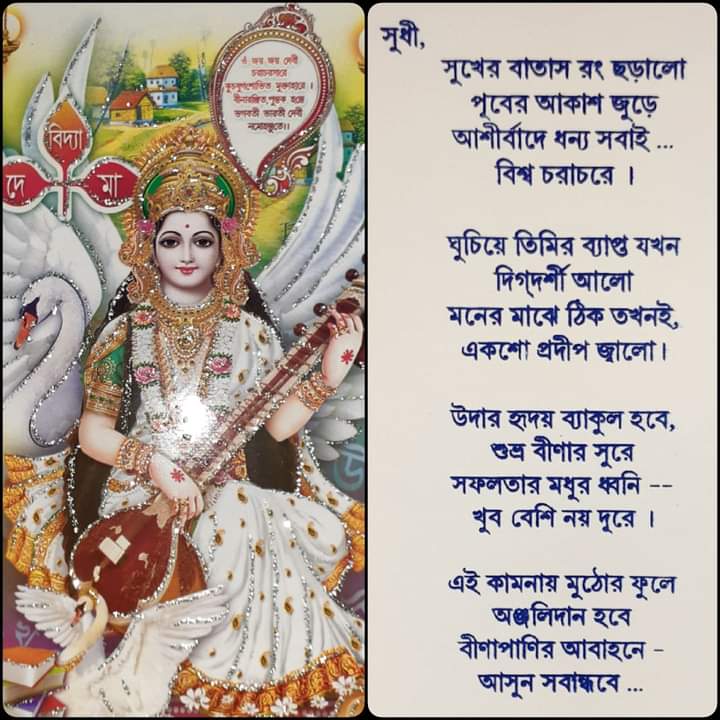 ওঁ জয় জয় দেবী
চরাচরসারে
কুচযুগশোভিত মুক্তাহারে ।
বীনারঞ্জিত,পুস্তক হস্তে
ভগবতী ভারতী দেবী
নমোহস্তুতে।।
বিদ্যা
দে
মা
সুধী,
সুখের বাতাস রং ছড়ালো
পূবের আকাশ জুড়ে
আশীর্বাদে ধন্য সবাই ...
বিশ্ব চরাচরে ।
ঘুচিয়ে তিমির ব্যাপ্ত যখন
দিগ্‌দর্শী আলো
মনের মাঝে ঠিক তখনই,
একশো প্রদীপ জ্বালো।
উদার হৃদয় ব্যাকুল হবে,
শুভ্র বীণার সুরে
সফলতার মধুর ধ্বনি --
খুব বেশি নয় দূরে ।
এই কামনায় মুঠোর ফুলে
অঞ্জলিদান হবে
বীণাপাণির আবাহনে -
আসুন সবান্ধবে ...